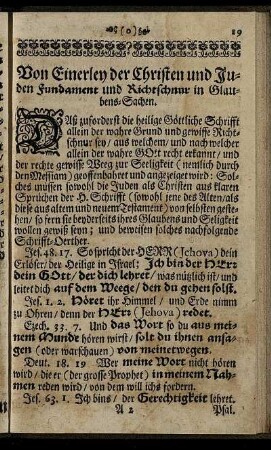 (o) 19
Von Einerley der Christen und Ju-
den Fundament und Richtschnur in Glau-
bens-Sachen.
DAß zuforderst die heilige Göttliche Schrifft
allein der wahre Grund und gewisse Richt-
schnur sey / aus welchem / und nach welcher
allein der wahre GOtt recht erkant / und
der rechte gewisse Weeg zur Seeligkeit (nemlich durch
den Messiam) geoffenbahret und angezeiget wird: Sol-
ches müssen sowohl die Juden als Christen aus klaren
Sprüchen der H. Schrifft (sowohl jene des Alten / als
diese aus diesem und neuen Testament) von selbsten geste-
hen / so fern sie beyderseits ihres Glaubens und Seligkeit
wollen gewiß seyn; und beweisen solches nachfolgende
Schrifft-Oerther.
Jes. 48. 17. So spricht der HERR (Jehova) dein
Erlöser / der Heilige in Israel: Ich bin der HErr
dein GOtt / der dich lehret / was nützlich ist / und
leitet dich auf dem Weege / den du gehen solst.
Jes. 1. 2. Höret ihr Himmel / und Erde nimm
zu Ohren / denn der HErr (Jehova) redet.
Ezech. 33. 7. Und das Wort so du aus mei-
nem Munde hören wirst / solt du ihnen ansa-
gen (oder warschauen) von meinetwegen.
Deut. 18. 19 Wer meine Wort nicht hören
wird / die er (der grosse Prophet) in meinem Nah-
men reden wird / von dem will ichs fordern.
Jes. 63. 1. Ich bins / der Gerechtigkeit lehret.
A 2 Psal.